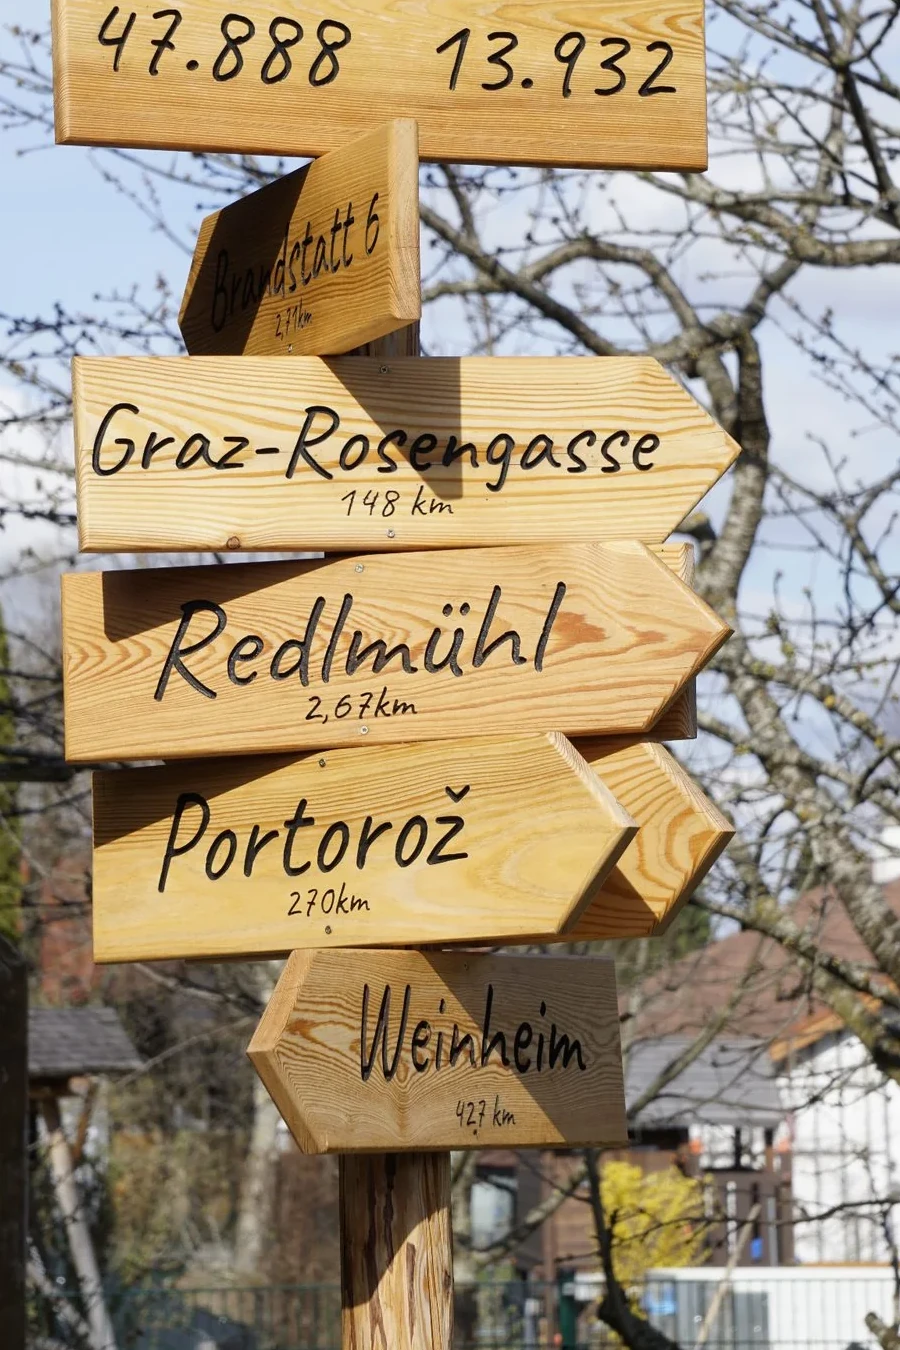 47.888 13.932
Brandstatt 6
2,71km
Graz-Rosengasse
148 km
Redlmühl
2,67km
Portorož
270km
Weinheim
427 km